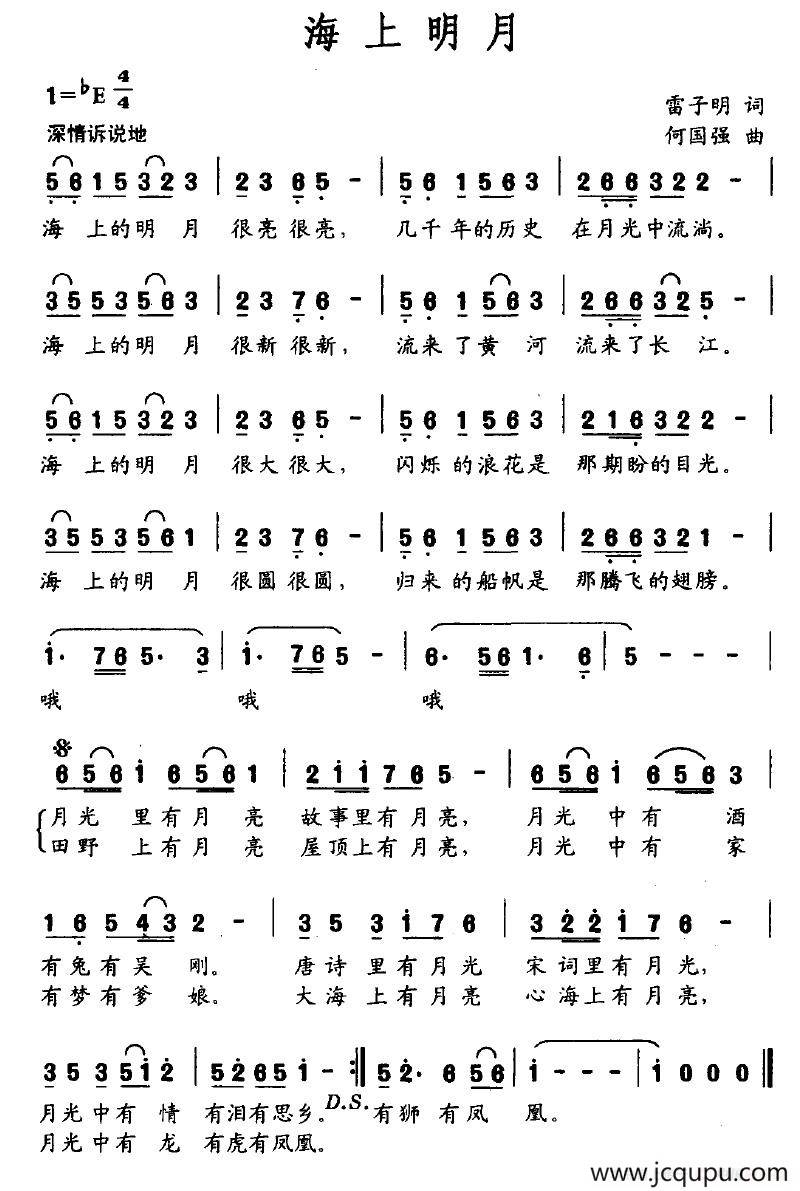 海上明月
1=♭E 4/4
雷子明 词
深情诉说地
何国强 曲
5 6 1 5 3 2 3 | 2 3 6 5 - | 5 6 1 5 6 3 | 2 6 6 3 2 2 - |
海 上的明 月 很亮很亮， 几千年的历史 在月光中流淌。
3 5 5 3 5 6 3 | 2 3 7 6 - | 5 6 1 5 6 3 | 2 6 6 3 2 5 - |
海 上的明 月 很新很新， 流来了黄 河 流来了长 江。
5 6 1 5 3 2 3 | 2 3 6 5 - | 5 6 1 5 6 3 | 2 1 6 3 2 2 - |
海 上的明 月 很大很大， 闪烁的浪花是 那期盼的目光。
3 5 5 3 5 6 1 | 2 3 7 6 - | 5 6 1 5 6 3 | 2 6 6 3 2 1 - |
海 上的明 月 很圆很圆， 归来的船帆是 那腾飞的翅膀。
i· 7 6 5· 3 | i· 7 6 5 - | 6· 5 6 1· 6 | 5 - - - |
哦 哦 哦
6 5 6 i 6 5 6 1 | 2 i i 7 6 5 - | 6 5 6 i 6 5 6 3 |
月光 里有月 亮 故事里有月亮， 月光 中 有 酒
田野 上有月 亮 屋顶上有月亮， 月光 中 有 家
1 6 5 4 3 2 - | 3 5 3 i 7 6 6 | 3 2 2 i 7 6 - |
有兔有吴 刚。 唐诗 里有月光 宋词里有月光，
有梦有爹 娘。 大海 上有月亮 心海上有月亮，
3 5 3 5 i 2 | 5 2 6 5 i - :‖ 5 2· 6 5 6 | i - - - | i 0 0 0 ‖
月光中有 情 有泪有思乡。 D.S. 有狮 有凤 凰。
月光中有 龙 有虎有凤凰。
www.jcqupu.com